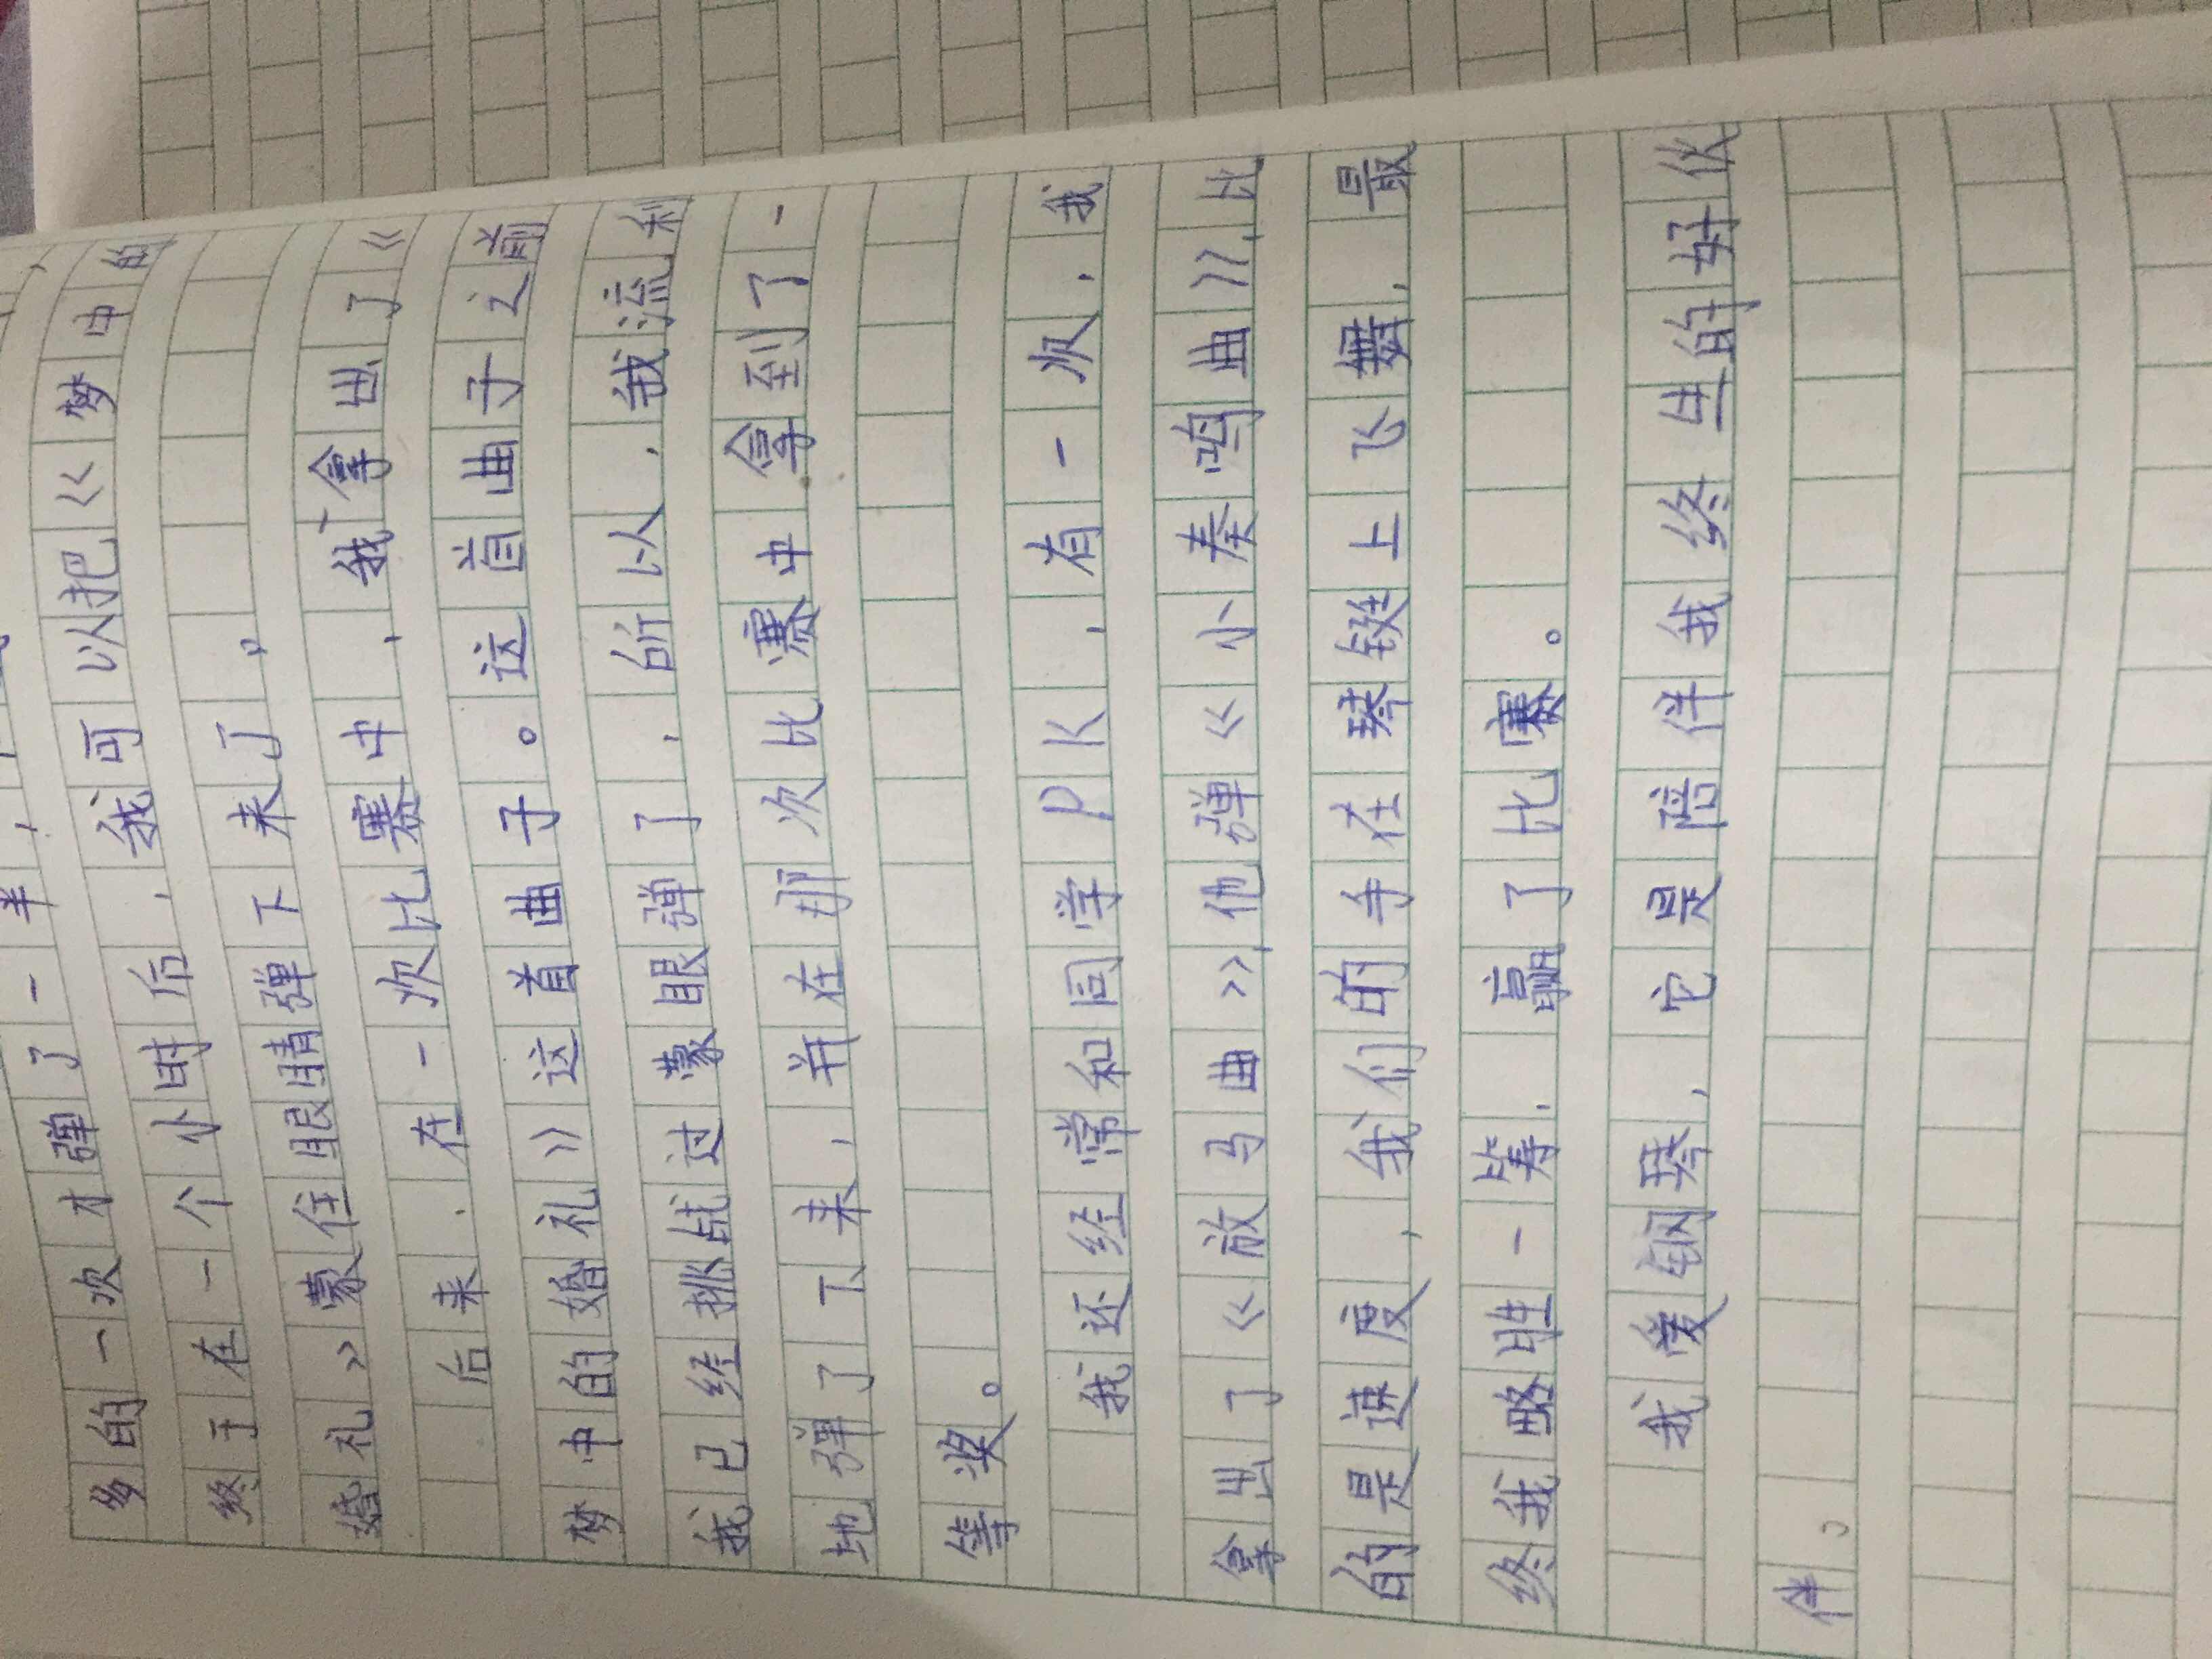 了一半，
多的一次才弹了
终于在一个小时后，我可以把《梦中的
婚礼》蒙住眼睛弹下来了。
后来，在一次比赛中，我拿出了《
梦中的婚礼》这首曲子。这首曲子之前
我已经挑战过蒙眼弹了，所以，我流利
地弹了下来，并在那次比赛中拿到了一
等奖。
我还经常和同学PK，有一次，我
拿出了《放马曲》，他弹《小奏鸣曲》，比
的是速度，我们的手在琴键上飞舞，最
终我略胜一筹，赢了比赛。
我爱钢琴，它是陪伴我终生的好伙
伴。